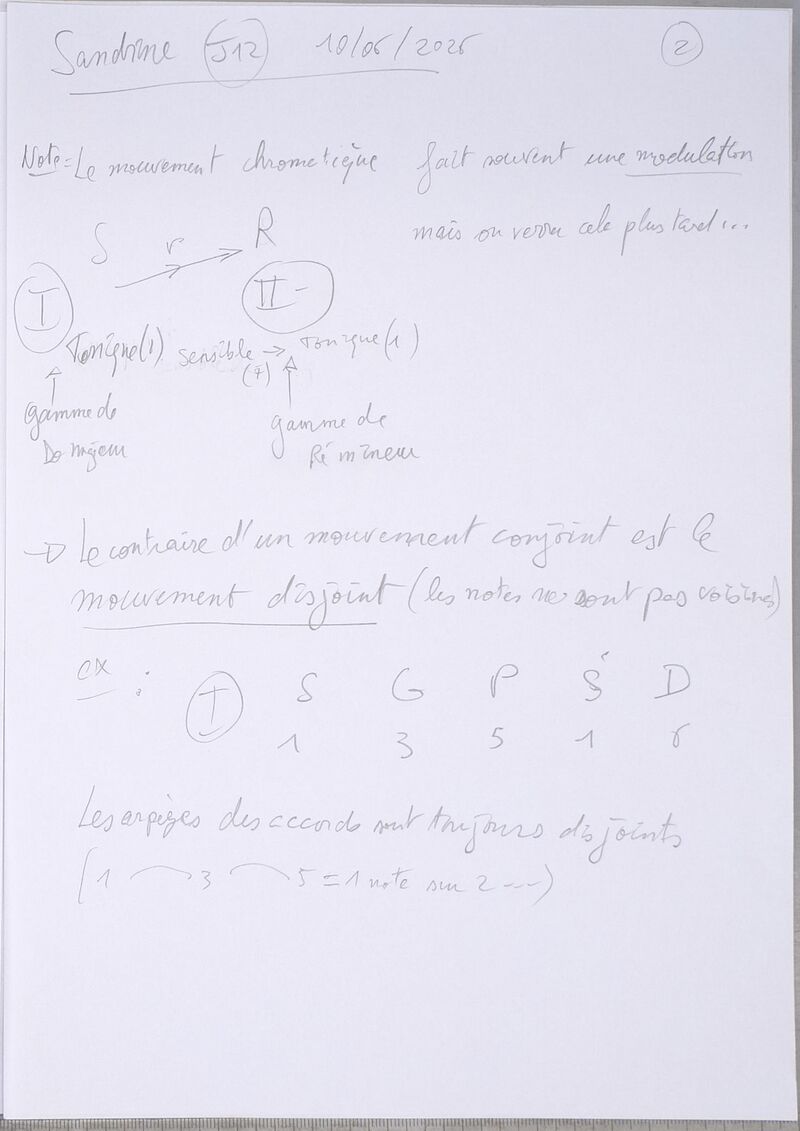 Sandrine J12 10/06/2026 2
Note = Le mouvement chromatique fait souvent une modulation
mais on verra cela plus tard...
S r R
I II-
Tonique(1) sensible → Tonique(1)
(7)
gamme de gamme de
Do majeur Ré mineur
→ Le contraire d'un mouvement conjoint est le
mouvement disjoint (les notes ne sont pas voisines)
ex : I S G P Ṡ D
1 3 5 1 6
Les arpèges des accords sont toujours disjoints
(1 3 5 = 1 note sur 2 ---)